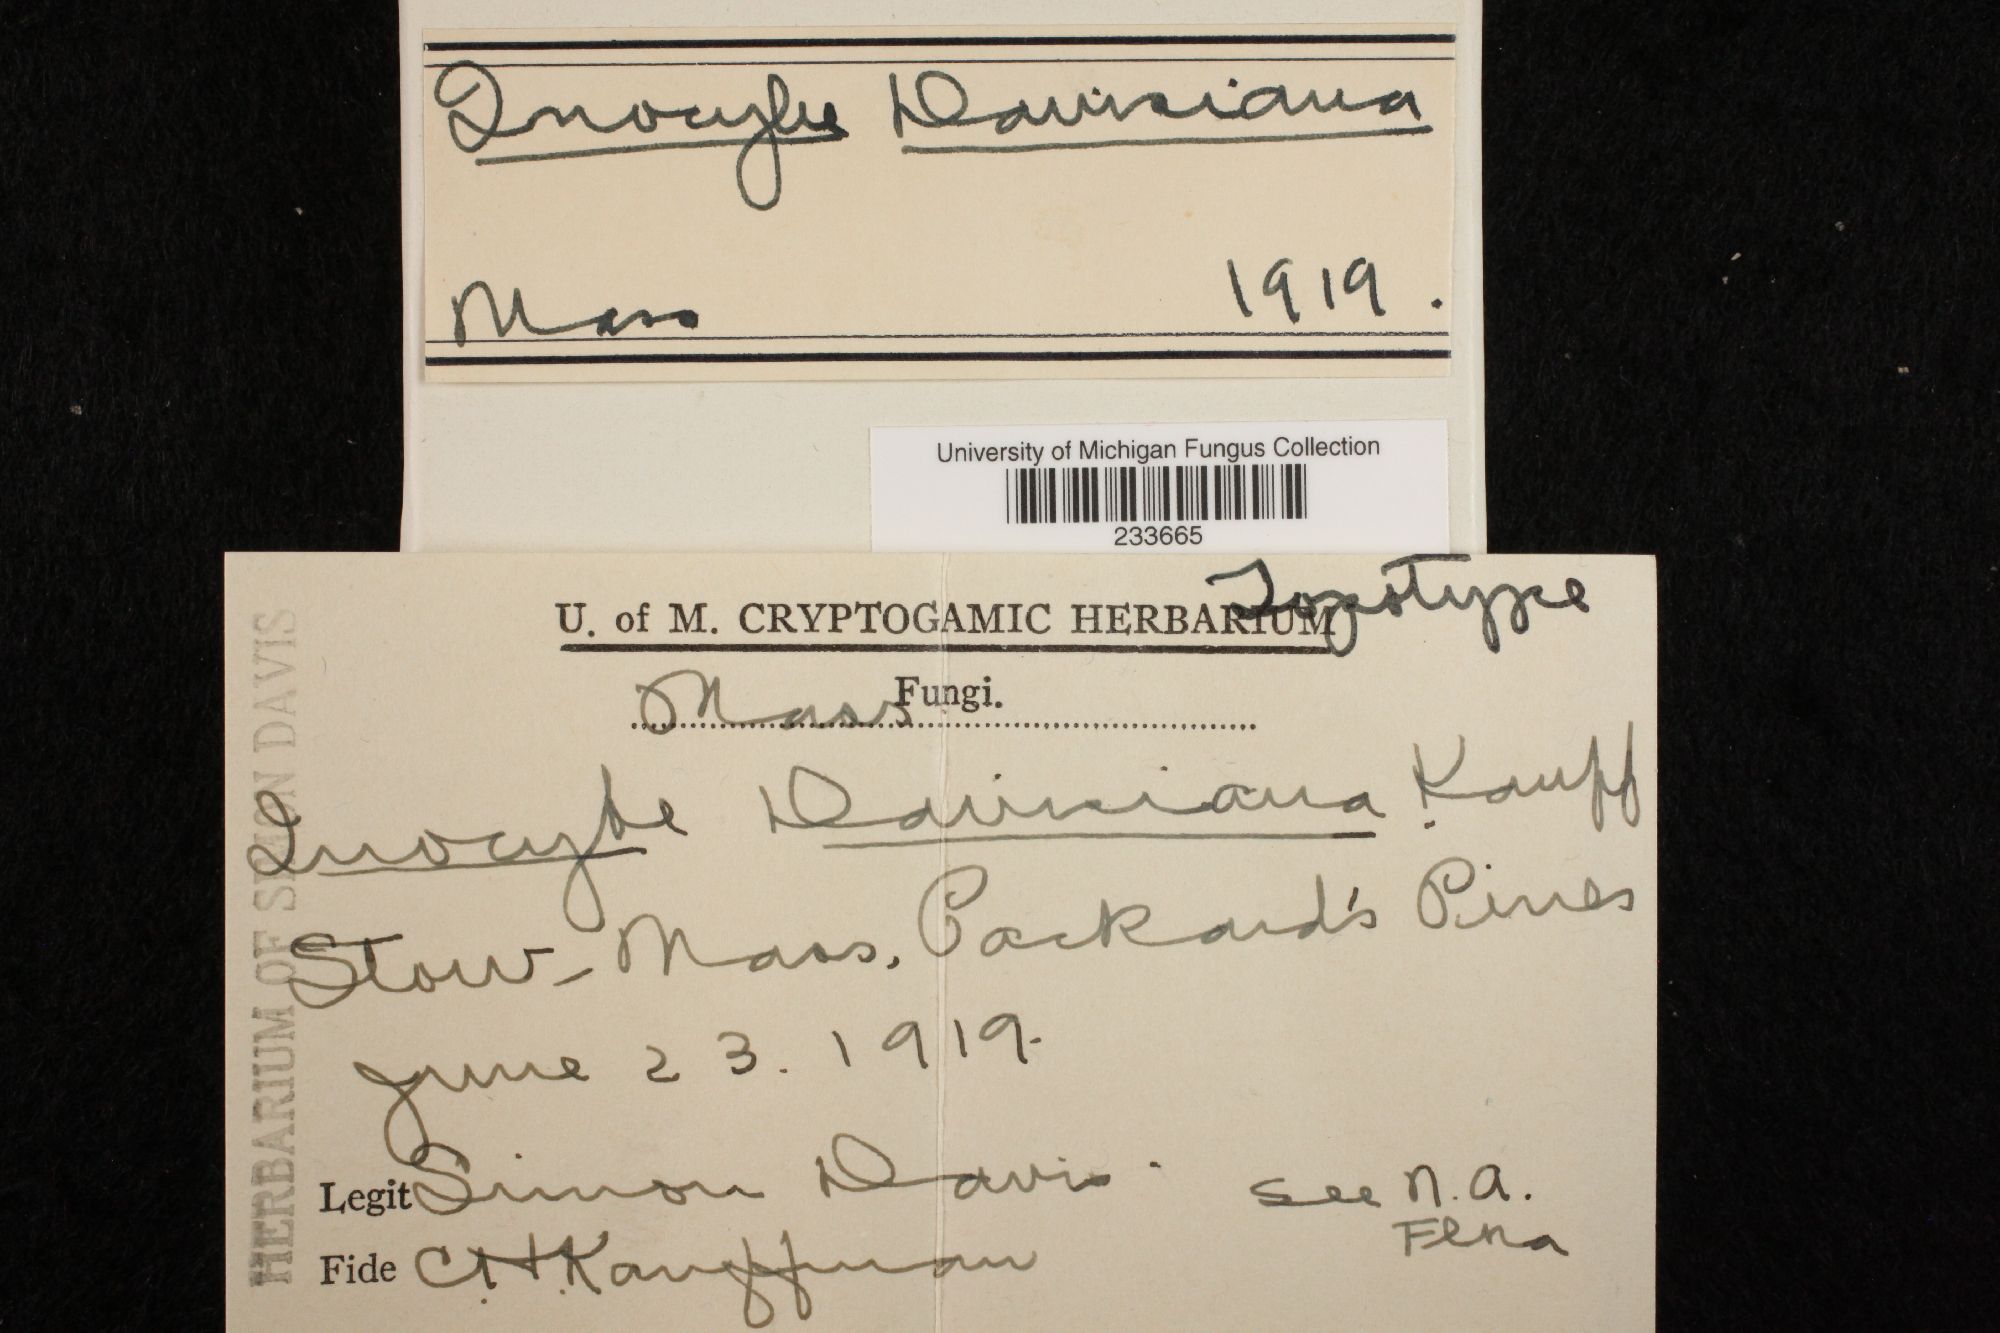 Inocybe Davisiana
Mass 1919.
University of Michigan Fungus Collection
233665
Topotype
U. of M. CRYPTOGAMIC HERBARIUM
Mass Fungi.
Inocybe Davisiana Kauff
Stow - Mass. Packard's Pines
June 23. 1919.
Legit Simon Davis.
See N.A.
Flna
Fide C.H.Kauffman
HERBARIUM OF SIMON DAVIS